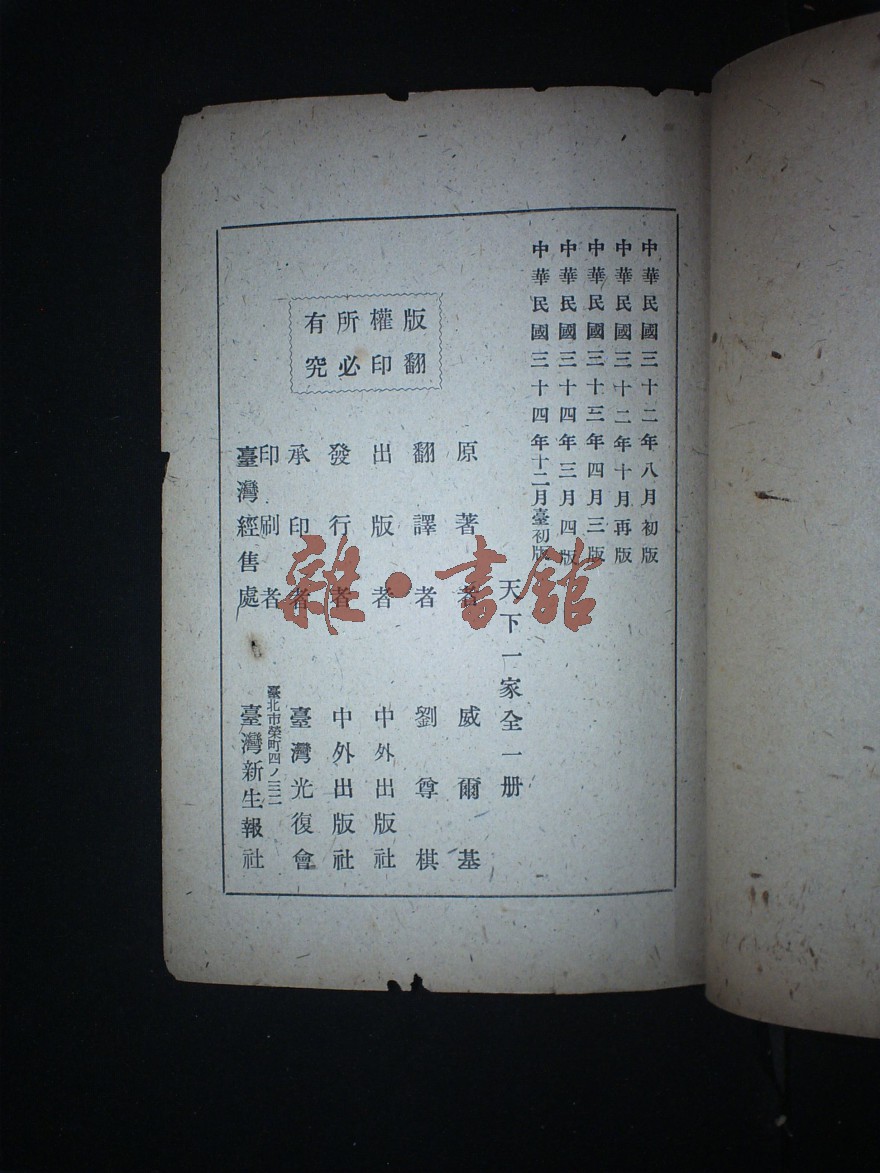 中華民國三十二年八月初版
中華民國三十二年十月再版
中華民國三十三年四月三版
中華民國三十四年三月四版
中華民國三十四年十二月臺初版
天下一家全一册
原著者 威爾基
翻譯者 劉尊棋
出版者 中外出版社
發行者 中外出版社
承印者 臺灣光復會
印刷者 臺北市榮町四ノ三二
臺灣經售處 臺灣新生報社
版權所有
翻印必究
雜·書館